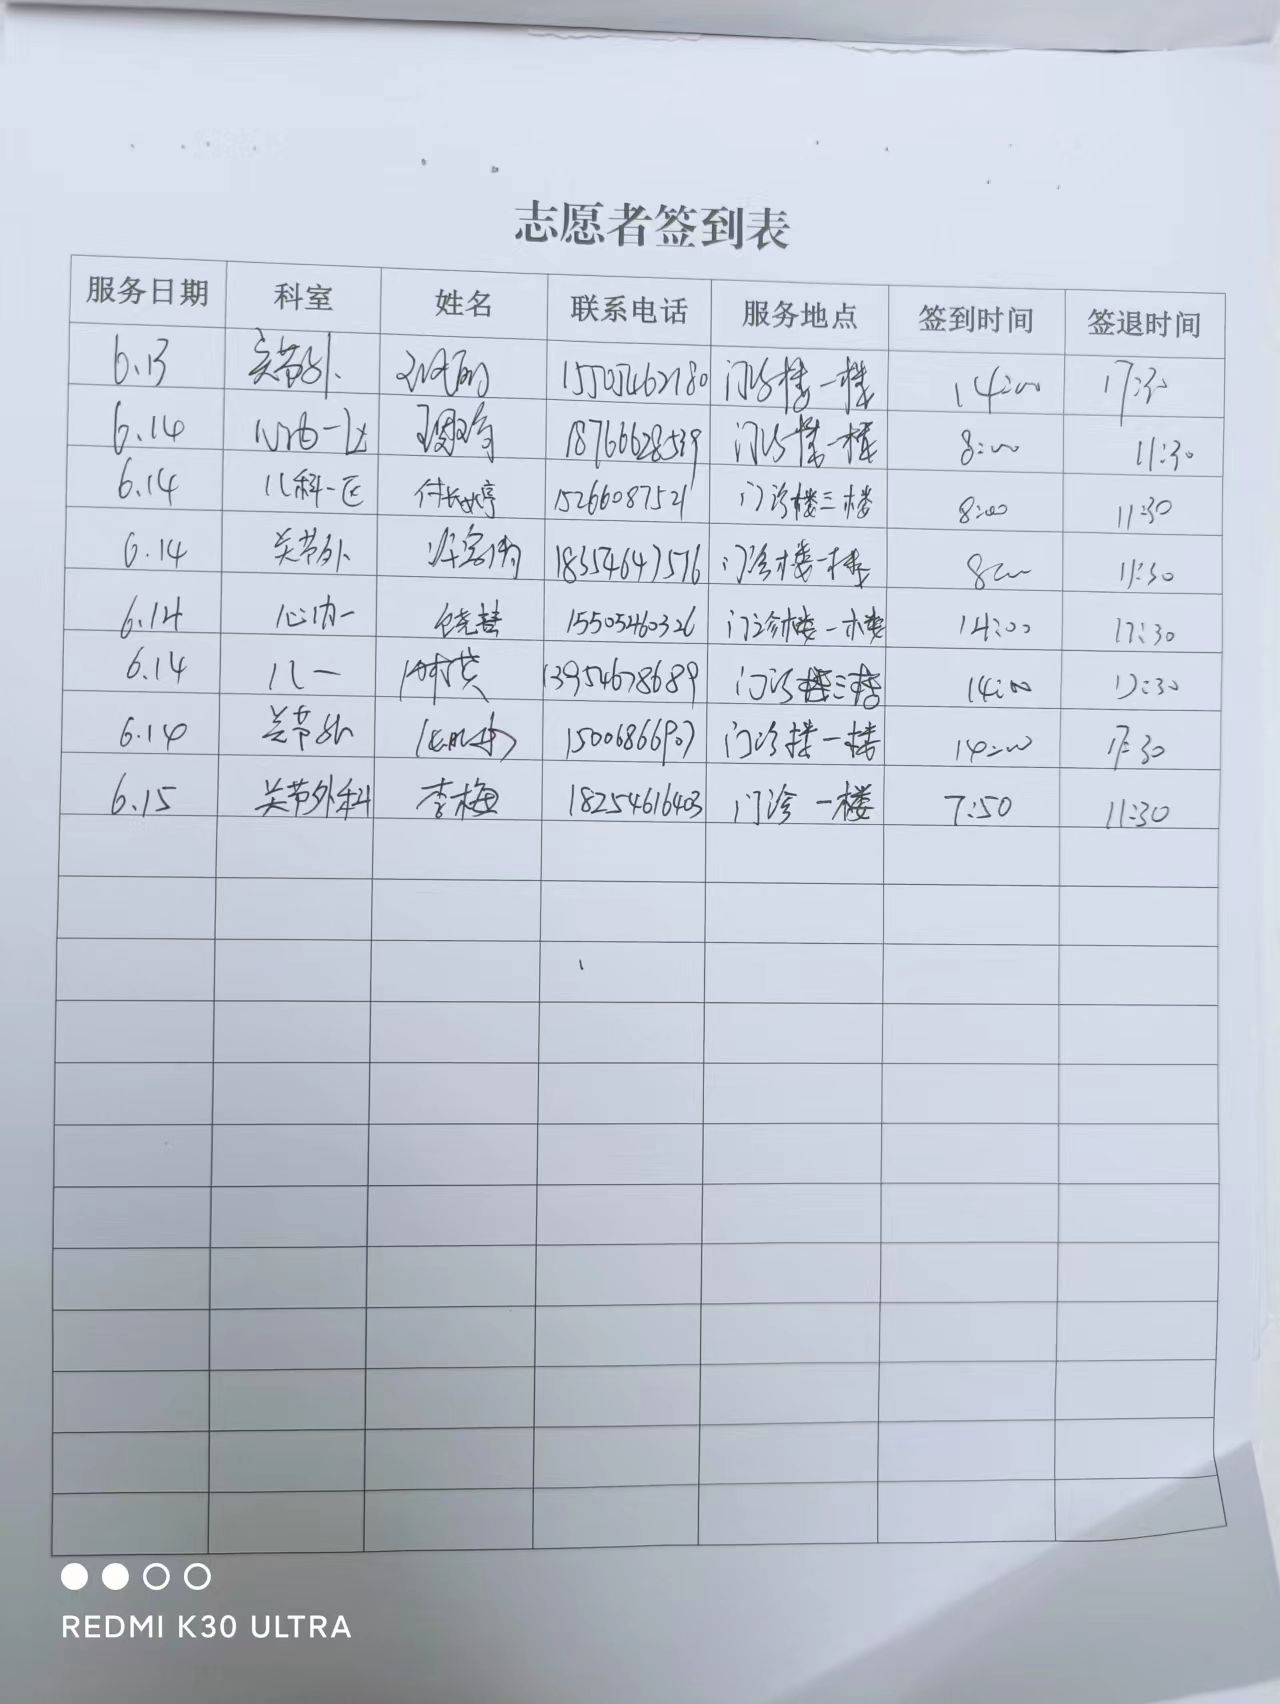 志愿者签到表
服务日期 科室 姓名 联系电话 服务地点 签到时间 签退时间
6.13 关节外 门诊楼一楼 14:00 17:30
6.14 18766628539 门诊楼一楼 8:00 11:30
6.14 儿科一区 付长婷 15266087521 门诊楼三楼 8:00 11:30
6.14 关节外 18554647576 门诊楼一楼 8:00 11:30
6.14 心内一 饶慧 15505460326 门诊楼一楼 14:00 17:30
6.14 儿一 13954678689 门诊楼三楼 14:00 17:30
6.14 关节外 15006866907 门诊楼一楼 14:00 17:30
6.15 关节外科 李梅 18254616403 门诊 一楼 7:50 11:30
REDMI K30 ULTRA